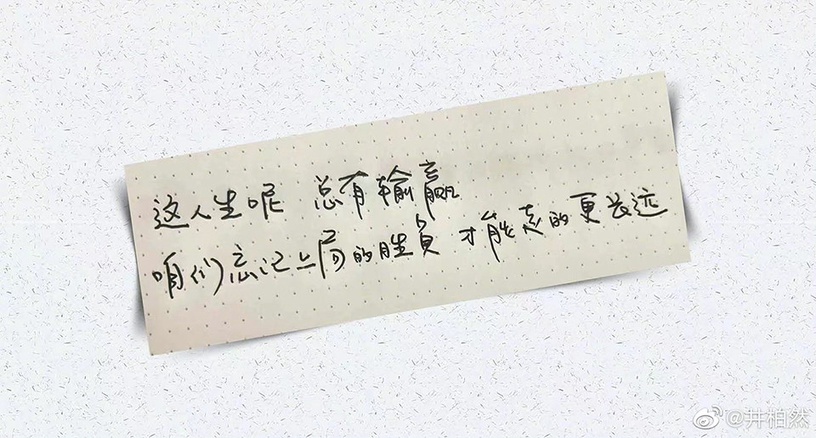 这人生呢 总有输赢
咱们忘记上局的胜負 才能走的更长远
@井柏然